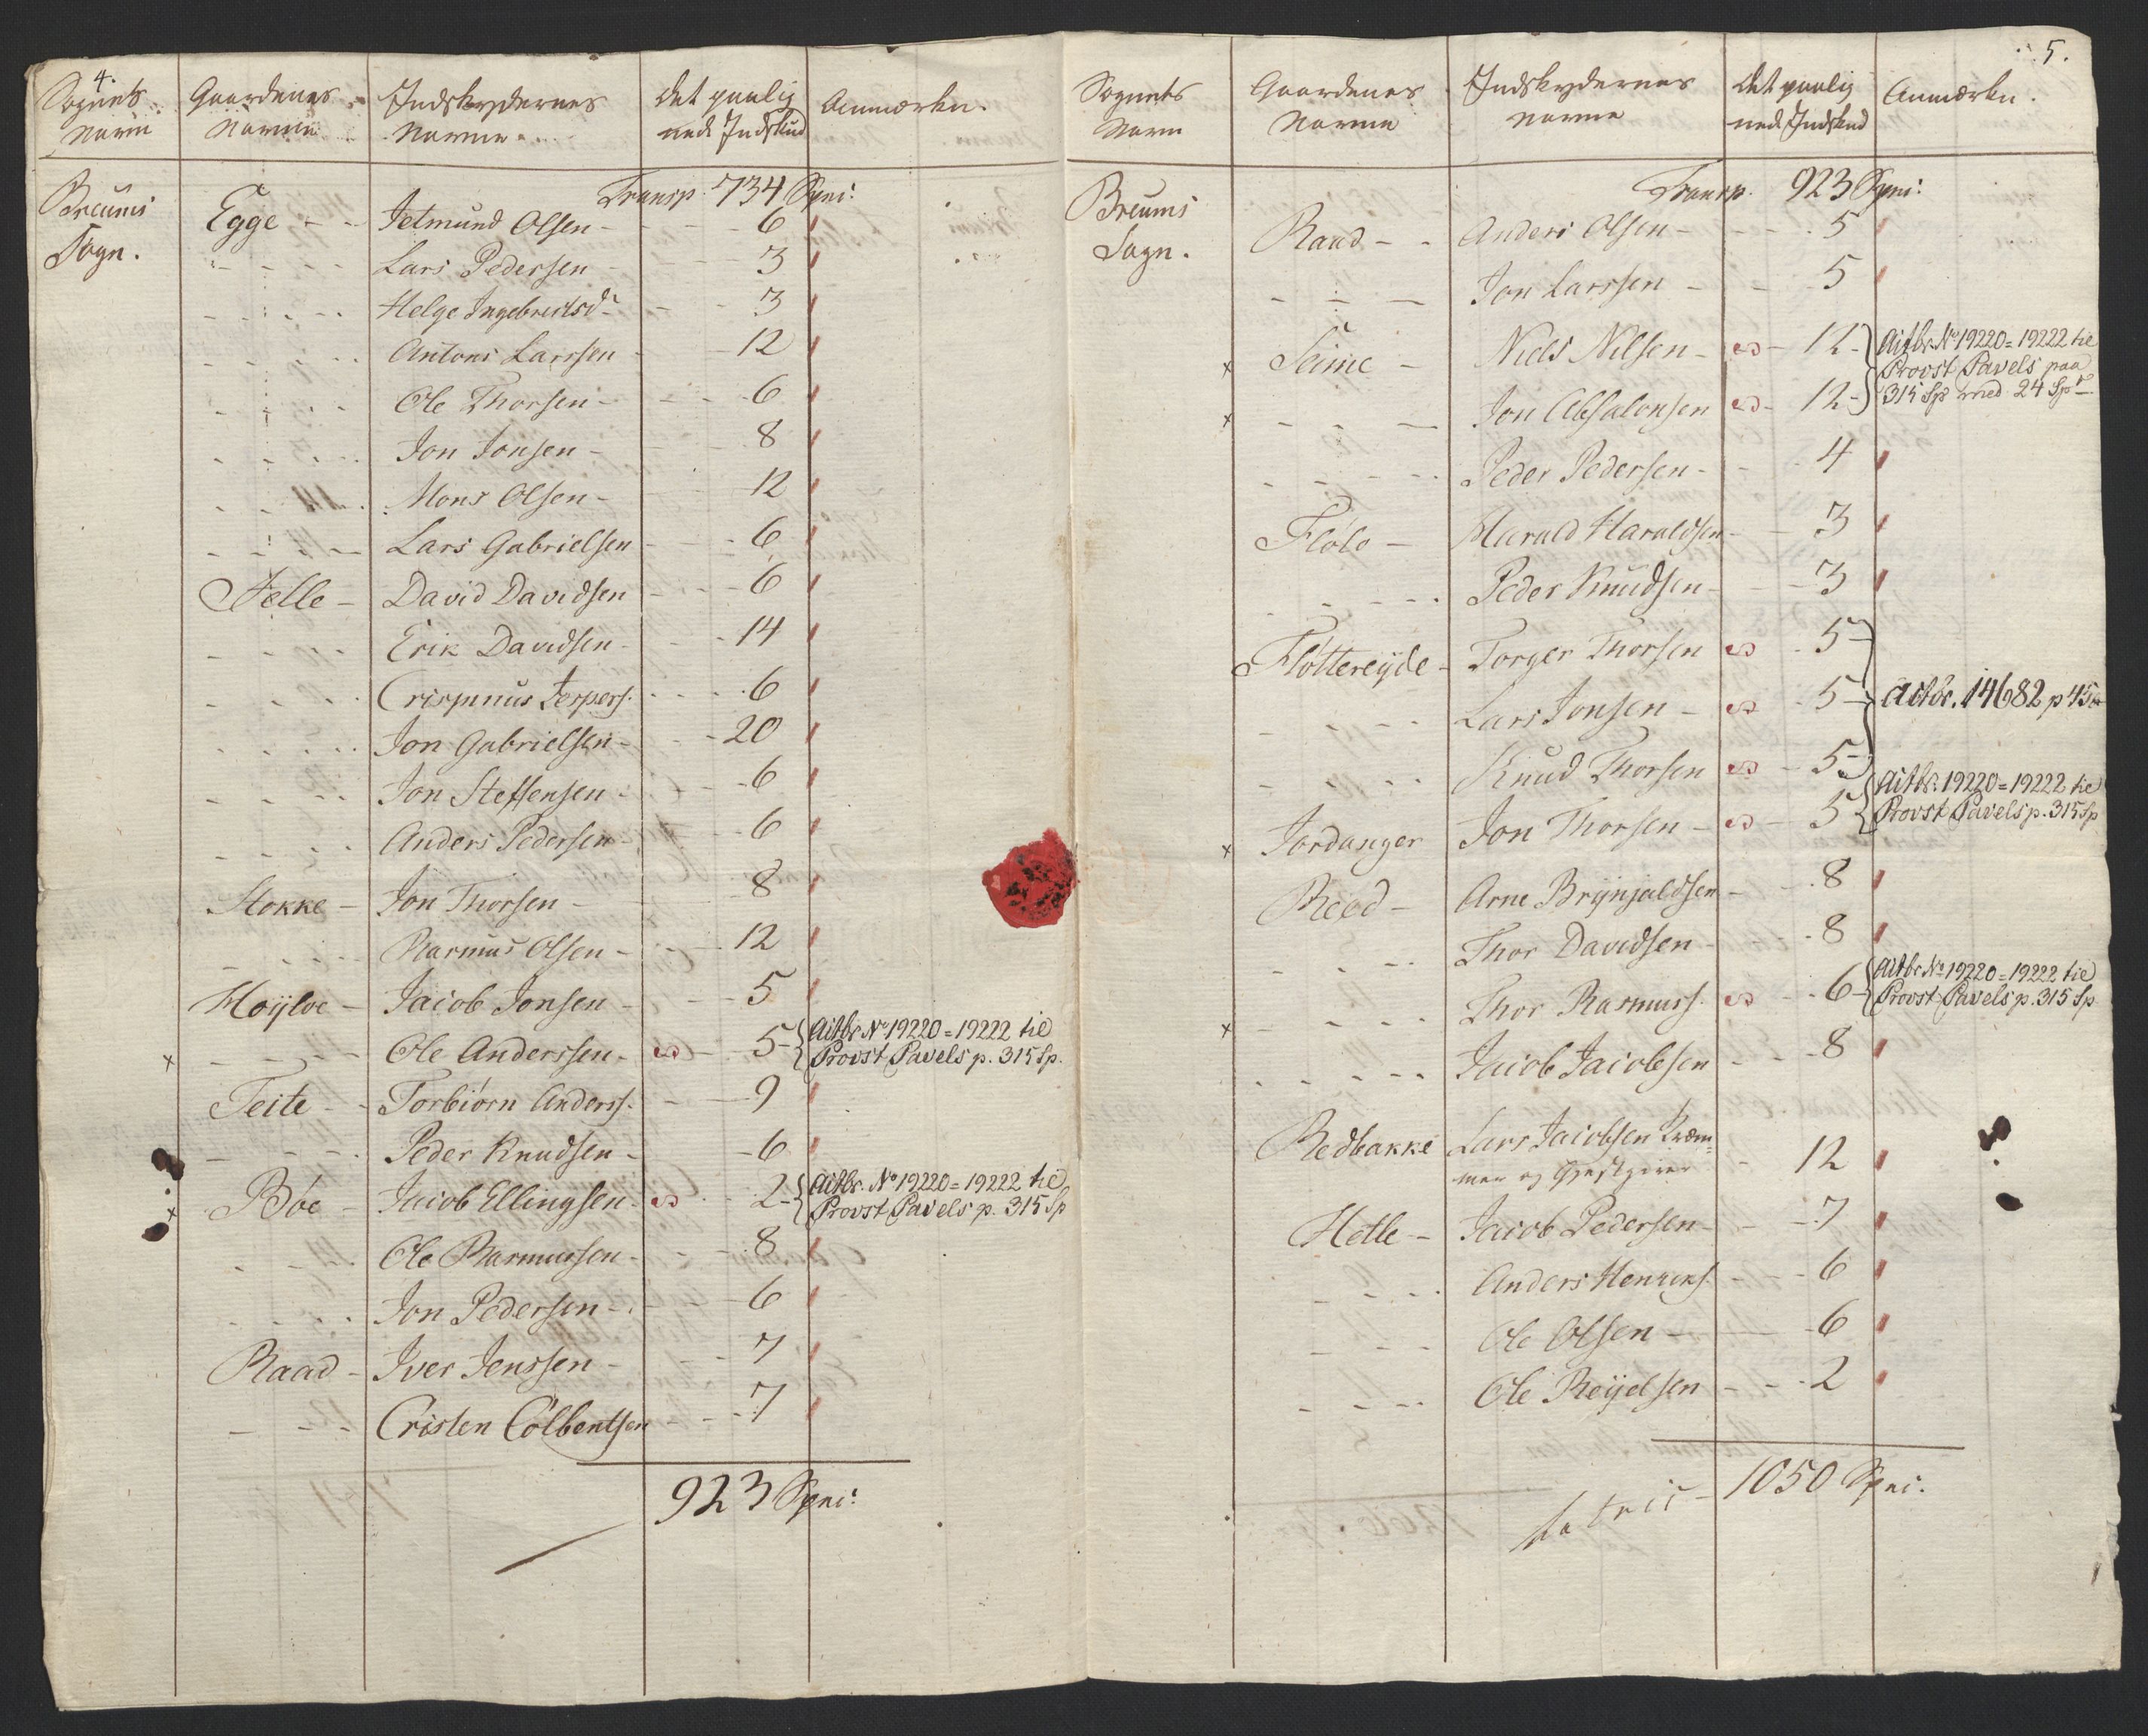 4.
Sognets Navn Gaardenes Navne Indskydernes Navne det paalignede Indskud Anmærkn.
Transp. 734 Spec:
Breums Sogn. Egge - - Jetmund Olsen - 6
- - - Lars Pedersen 3
- - - Helge Ingebrictsdr 3
- - - Antons Larssen 12
- - - Ole Thorsen - 6
- - - Jon Jonsen - 8
- - - Mons Olsen - 12
- - - Lars Gabrielsen 6
Felle - David Davidsen 6
- - - Erik Davidsen - 14
- - - Crispinus Jespers. 6
- - - Jon Gabrielsen - 20
- - - Jon Steffensen - 6
- - - Anders Pedersen 6
Stokke - Jon Thorsen - 8
- - - Rasmus Olsen - 12
Høyloe - Jacob Jonsen - 5
x - - - Ole Anderssen - 5 - { Aitbr No 19220 = 19222 til
Provst Pavels p. 315 Sp.
Teite - - Torbiørn Anderss. 9
- - - Peder Knudsen - 6
x Bøe - Jacob Ellingsen - 2 - { Aitbr. No 19220 = 19222 til
Provst Pavels p. 315 Sp
- - - Ole Rasmussen - 8
- - - Jon Pedersen - 6
Raad - Iver Jenssen - 7
- - - Cristen Colbentsen 7
923 Spec:
5.
Sognets Navn Gaardenes Navne Indskydernes Navne det paalignede Indskud Anmærkn.
Transp. 923 Spec:
Breums Sogn. Raad - - Anders Olsen - 5
- - - Jon Larssen - 5
x Seime - Niels Nilsen - 12 - } Aitbr. No 19220 = 19222 til
Provst Pavels paa
x - - - Jon Absalonsen 12 - } 315 Sp med 24 Spd
- - - Peder Pedersen - 4
Fløto - Harald Haraldsen - 3
- - - Peder Knudsen - 3
Fløttereyde - Torger Thorsen 5 -
- - - Lars Jonsen - 5 - } Aitbr. 14682 p 45
- - - Knud Thorsen 5 -
x Jordanger Jon Thorsen - 5 { Aitbr. 19220 = 19222 til
Provst Pavels p. 315 Sp
Reed - Arne Brynjaldsen - 8
- - - Thor Davidsen - 8
x - - - Thor Rasmuss. 6 - { Aitbr No 19220 = 19222 til
Provst Pavels p. 315 Sp
- - - Jacob Jacobsen 8
Redbakke Lars Jacobsen Kræm=
mer og Gjestgiver 12
Hetle - Jacob Pedersen - 7
- - - Anders Henriks. 6
- - - Ole Olsen - 6
- - - Ole Reyelsen 2
Latris - 1050 Spec: